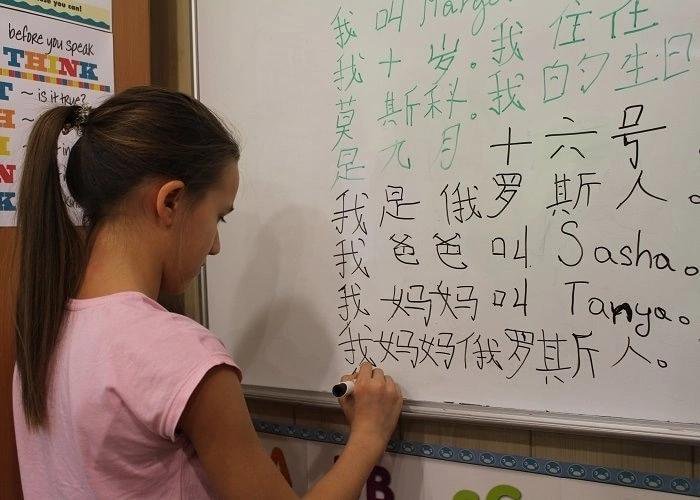 you can!
before you speak
THINK
T ~ is it true?
H
I
N
K
我 叫
我 十 岁。我 住 在
莫 斯科。我 的 生日
是 九 月 十 六 号
我 是 俄 罗 斯 人。
我 爸 爸 叫 Sasha。
我 妈妈 叫 Tanya。
我妈妈俄罗斯人。